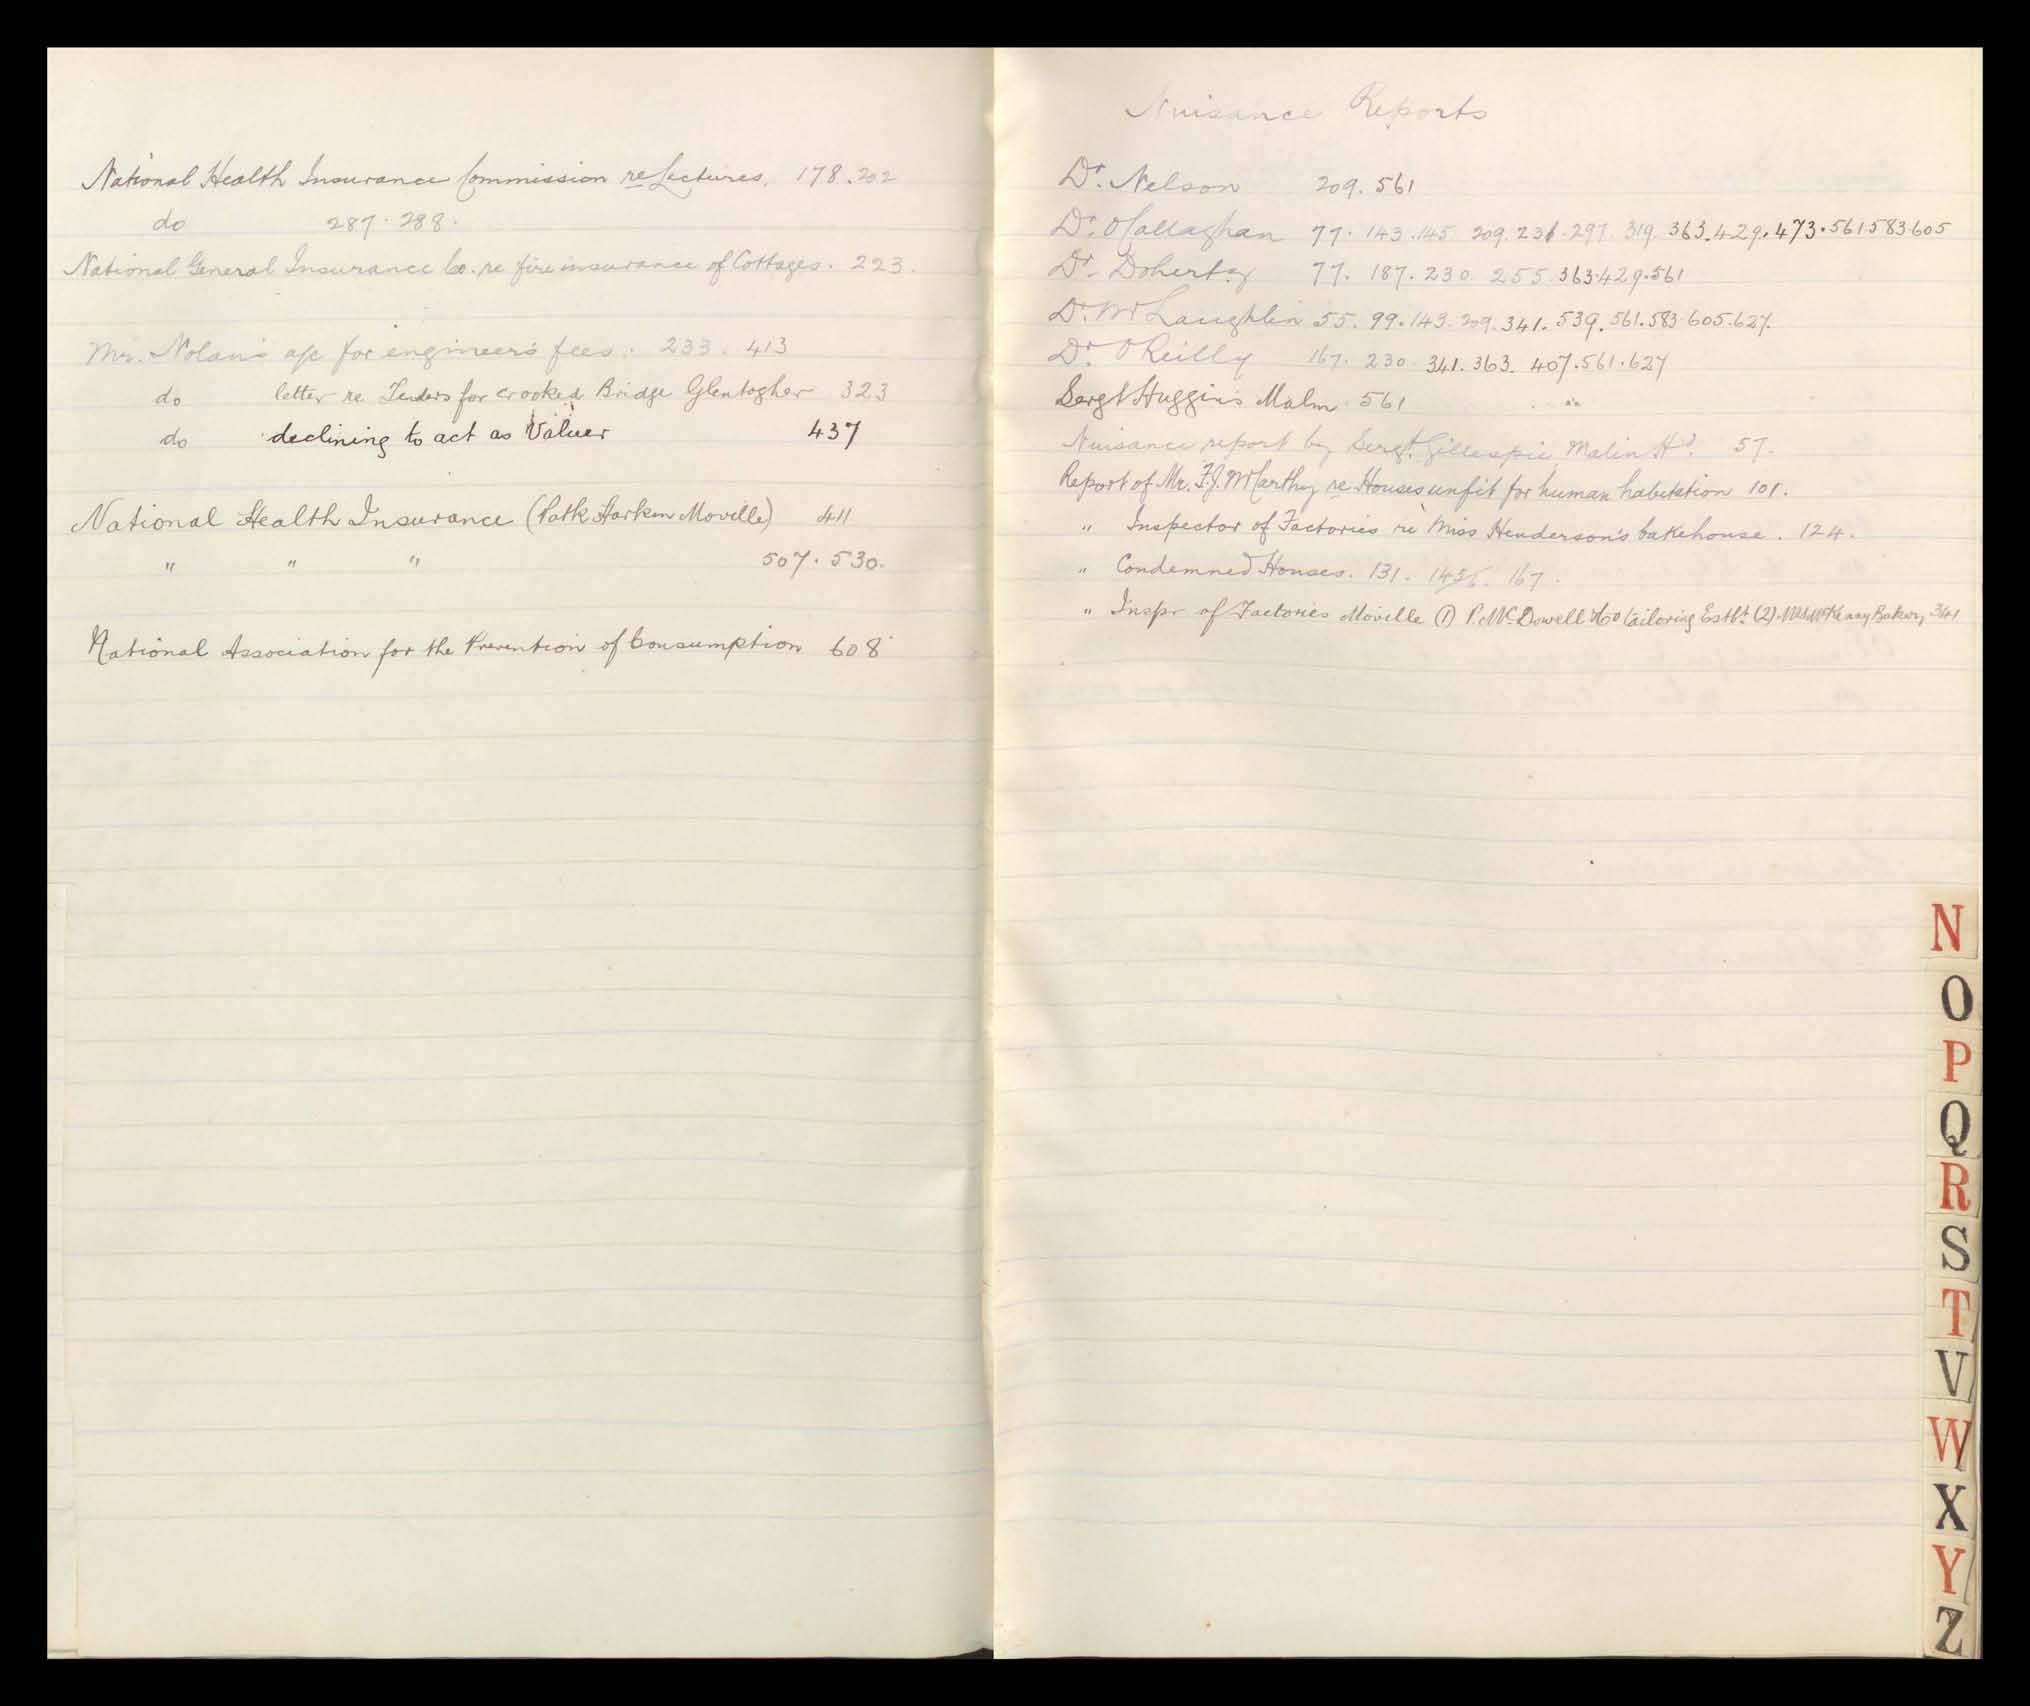 National Health Insurance Commission re Lectures. 178. 202
do 287. 288.
National General Insurance Co. re fire insurance of Cottages. 223.
Mr. Nolan's a/c for engineer's fees. 233. 413
do letter re Tenders for Crooked Bridge Glentogher 323
do declining to act as Valuer 437
National Health Insurance (Patk Harkin Moville) 411
" " " 507. 530.
National Association for the Prevention of Consumption 608
Nuisance Reports
Dr. Nelson 209. 561
Dr. O'Callaghan 77. 143. 145. 209. 231. 297. 319. 363. 429. 473. 561. 583. 605
Dr. Doherty 77. 187. 230. 255. 363. 429. 561
Dr. McLaughlin 55. 99. 143. 209. 341. 539. 561. 583. 605. 627.
Dr. O'Reilly 167. 230. 341. 363. 407. 561. 627
Sergt Huggins Malin 561
Nuisance report by Sergt. Gillespie, Malin Hd. 57.
Report of Mr. F.J. McCarthy re Houses unfit for human habitation 101.
" Inspector of Factories re Miss Henderson's bakehouse. 124.
" Condemned Houses. 131. 167.
" Inspr of Factories Moville (1) P. McDowell & Co Tailoring Estbt. (2) Bakery 341
N
O
P
Q
R
S
T
V
W
X
Y
Z